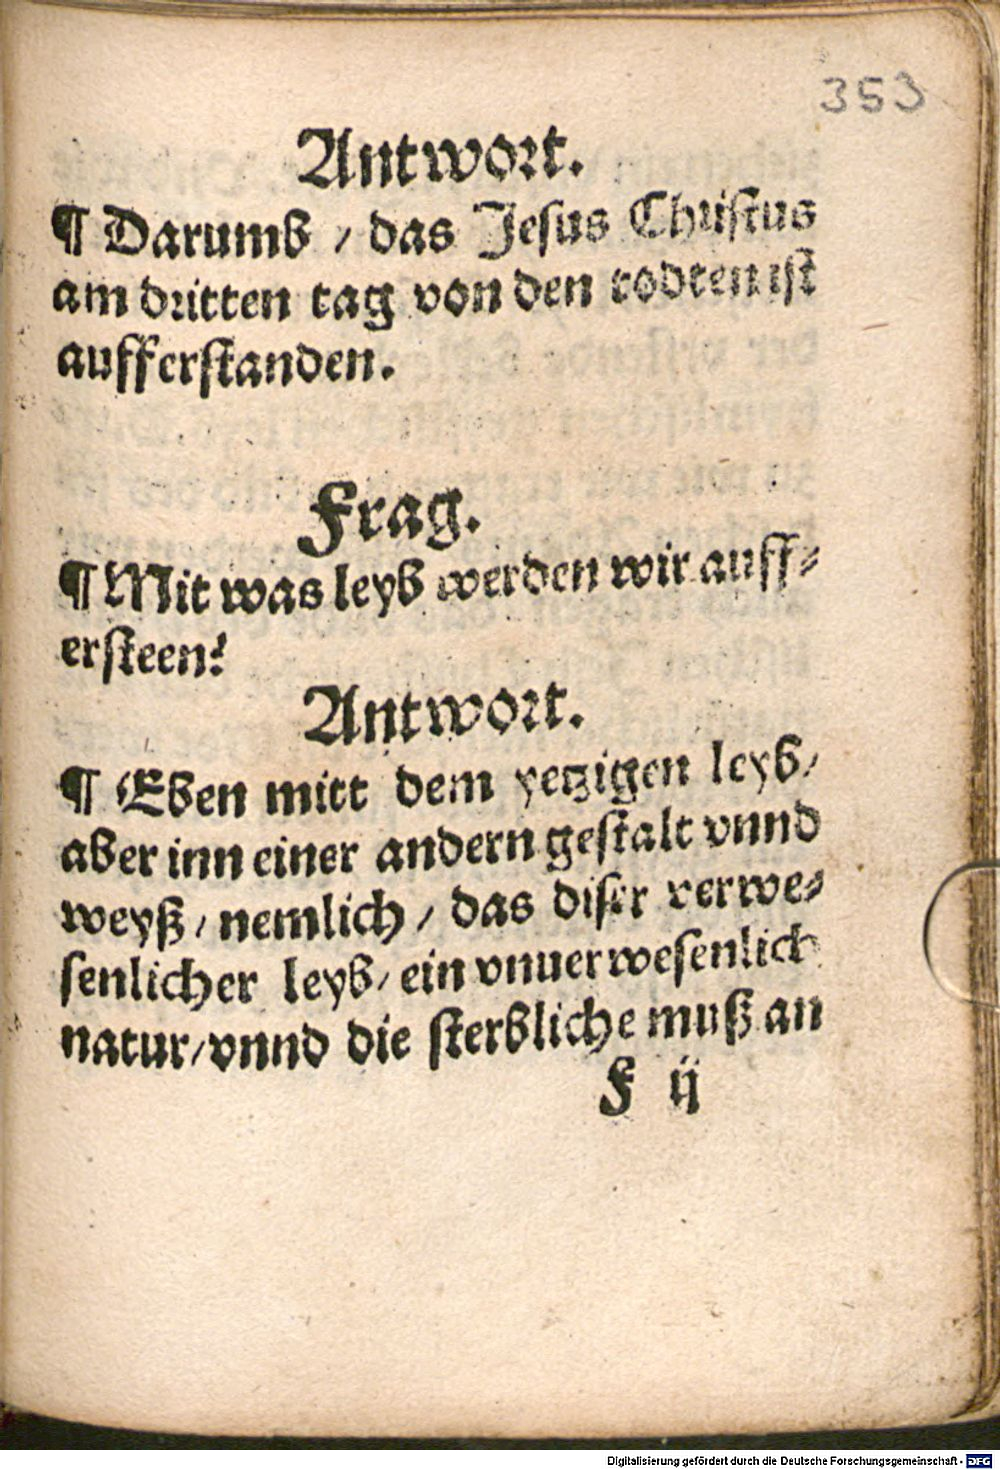 353
Antwort.
¶ Darumb / das Jesus Christus
am dritten tag von den todten ist
aufferstanden.
Frag.
¶ Mit was leyb werden wir auff⸗
ersteen?
Antwort.
¶ Eben mitt dem yetzigen leyb /
aber inn einer andern gestalt vnnd
weyß / nemlich / das diser verwe⸗
senlicher leyb / ein vnuerwesenlich
natur / vnnd die sterbliche muß an
F ij
Digitalisierung gefördert durch die Deutsche Forschungsgemeinschaft - DFG